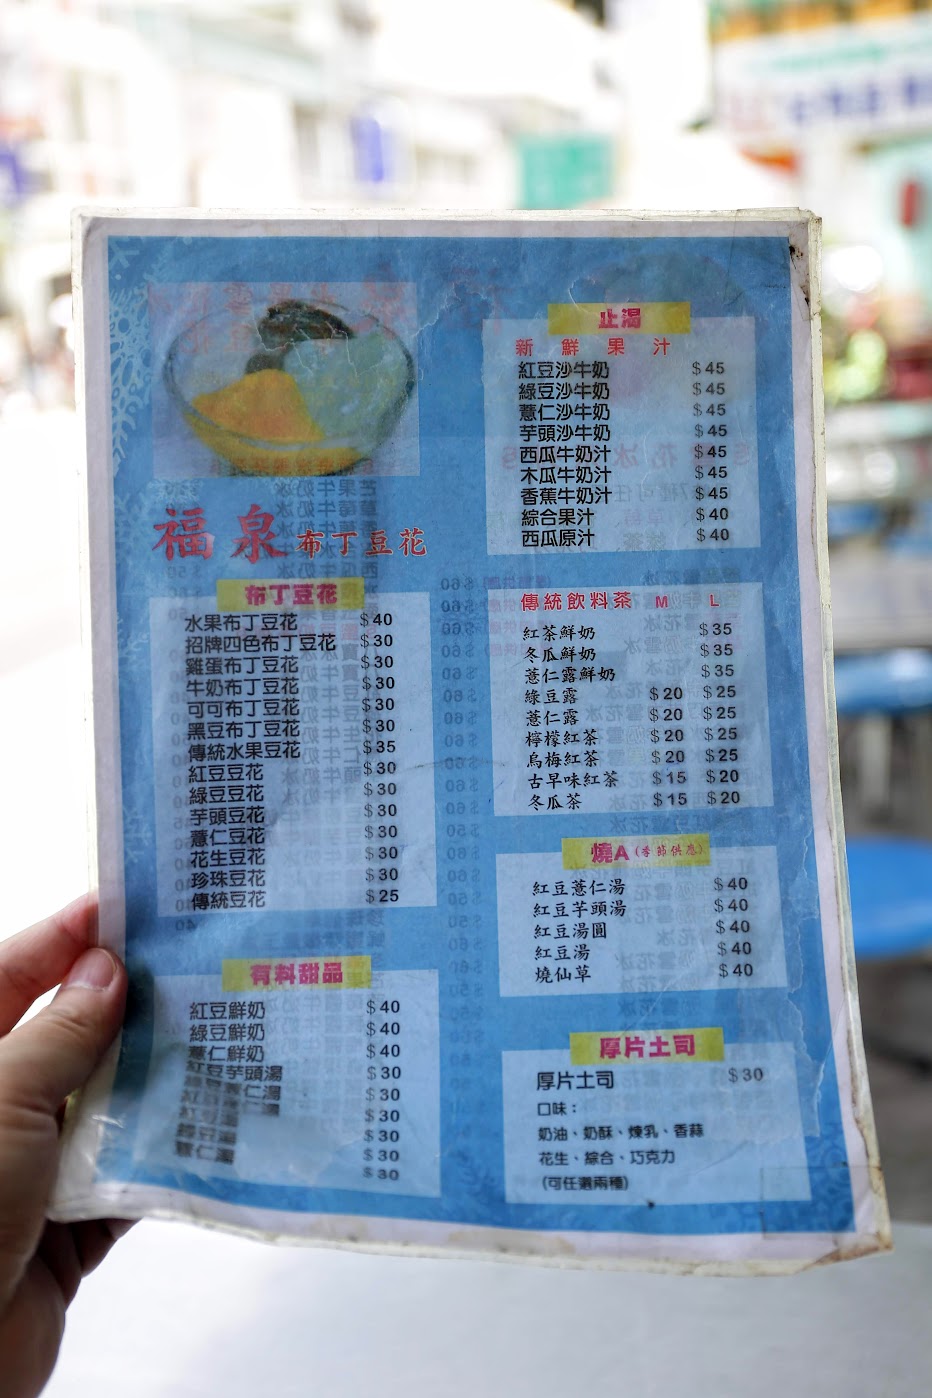 福泉布丁豆花
布丁豆花
水果布丁豆花 $40
招牌四色布丁豆花 $30
雞蛋布丁豆花 $30
牛奶布丁豆花 $30
可可布丁豆花 $30
黑豆布丁豆花 $30
傳統水果豆花 $35
紅豆豆花 $30
綠豆豆花 $30
芋頭豆花 $30
薏仁豆花 $30
花生豆花 $30
珍珠豆花 $30
傳統豆花 $25
有料甜品
紅豆鮮奶 $40
綠豆鮮奶 $40
薏仁鮮奶 $40
紅豆芋頭湯 $30
$30
$30
綠豆湯 $30
薏仁湯 $30
$30
止渴
新鮮果汁
紅豆沙牛奶 $45
綠豆沙牛奶 $45
薏仁沙牛奶 $45
芋頭沙牛奶 $45
西瓜牛奶汁 $45
木瓜牛奶汁 $45
香蕉牛奶汁 $45
綜合果汁 $40
西瓜原汁 $40
傳統飲料茶 M L
紅茶鮮奶 $35
冬瓜鮮奶 $35
薏仁露鮮奶 $35
綠豆露 $20 $25
薏仁露 $20 $25
檸檬紅茶 $20 $25
烏梅紅茶 $20 $25
古早味紅茶 $15 $20
冬瓜茶 $15 $20
燒A(季節供應)
紅豆薏仁湯 $40
紅豆芋頭湯 $40
紅豆湯圓 $40
紅豆湯 $40
燒仙草 $40
厚片土司
厚片土司 $30
口味：
奶油、奶酥、煉乳、香蒜
花生、綜合、巧克力
(可任選兩種)